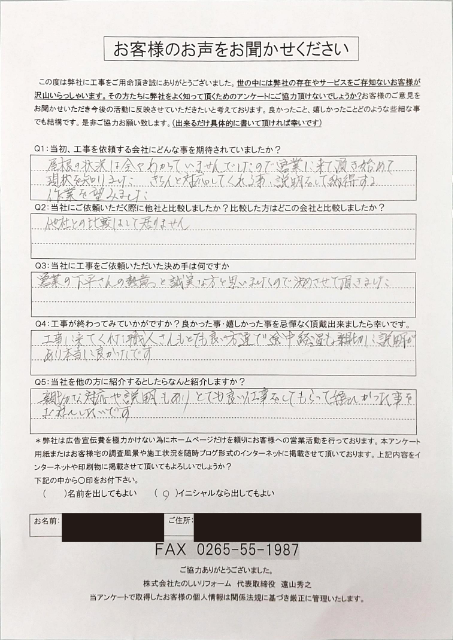 お客様のお声をお聞かせください
この度は弊社に工事をご用命頂き誠にありがとうございました。世の中には弊社の存在やサービスをご存知ないお客様が
沢山いらっしゃいます。その方たちに弊社をよく知って頂くためのアンケートにご協力頂けないでしょうか?お客様のご意見を
お聞かせいただき今後の活動に反映させていただきたいと考えております。良かったこと、嬉しかったことどのような些細な事
でも結構です。是非ご協力お願い致します。(出来るだけ具体的に書いて頂ければ幸いです)
Q1:当初、工事を依頼する会社にどんな事を期待されていましたか?
屋根の状況は全くわかっていませんでしたので営業に来て頂き始めて
現状を知りました きちんと対応してくれる事、説明をして納得する
作業を望みました
Q2:当社にご依頼いただく際に他社と比較しましたか?比較した方はどこの会社と比較しましたか?
他社との比較はして居りません
Q3:当社に工事をご依頼いただいた決め手は何ですか
営業の下平さんの熱意っと誠実な方と思いましたので決めさせて頂きました
Q4:工事が終わってみていかがですか?良かった事・嬉しかった事を忌憚なく頂戴出来ましたら幸いです。
工事に来てくれた職人さんもとても良い方達で途中経過も親切に説明が
あり本当に良かったです
Q5:当社を他の方に紹介するとしたらなんと紹介しますか?
親切な対応や説明もあり とても良い工事をしてもらって
*弊社は広告宣伝費を極力かけない為にホームページだけを頼りにお客様への営業活動を行っております。本アンケート
用紙またはお客様宅の調査風景や施工状況を随時ブログ形式のインターネットに掲載させて頂いております。上記内容をイ
ンターネットや印刷物に掲載させて頂いてもよろしいでしょうか?
下記の中から〇印をお付下さい。
( )名前を出してもよい (○)イニシャルなら出してもよい
お名前: ご住所:
FAX 0265-55-1987
ご協力ありがとうございました。
株式会社たのしいリフォーム 代表取締役 遠山秀之
当アンケートで取得したお客様の個人情報は関係法規に基づき厳正に管理いたします。